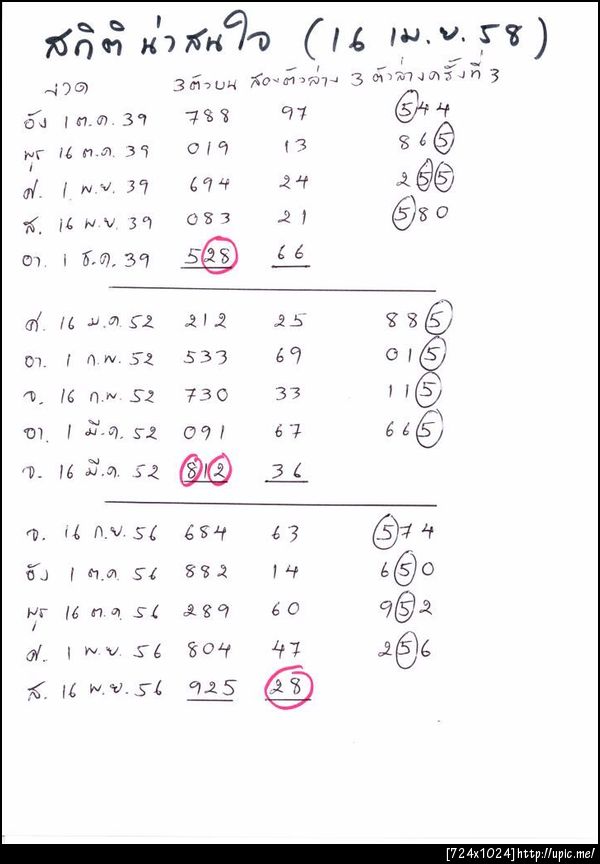 สถิติน่าสนใจ (16 เม.ย. 58)
งวด 3 ตัวบน สองตัวล่าง 3 ตัวล่างครั้งที่ 3
อัง 1 ต.ค. 39 788 97 544
พุธ 16 ต.ค. 39 019 13 865
ศ. 1 พ.ย. 39 694 24 255
ส. 16 พ.ย. 39 083 21 580
อา. 1 ธ.ค. 39 528 66
ศ. 16 ม.ค. 52 212 25 885
อา. 1 ก.พ. 52 533 69 015
จ. 16 ก.พ. 52 730 33 115
อา. 1 มี.ค. 52 091 67 665
จ. 16 มี.ค. 52 812 36
จ. 16 ก.ย. 56 684 63 574
อัง 1 ต.ค. 56 882 14 650
พุธ 16 ต.ค. 56 289 60 952
ศ. 1 พ.ย. 56 804 47 256
ส. 16 พ.ย. 56 925 28
[724x1024]http://upic.me/